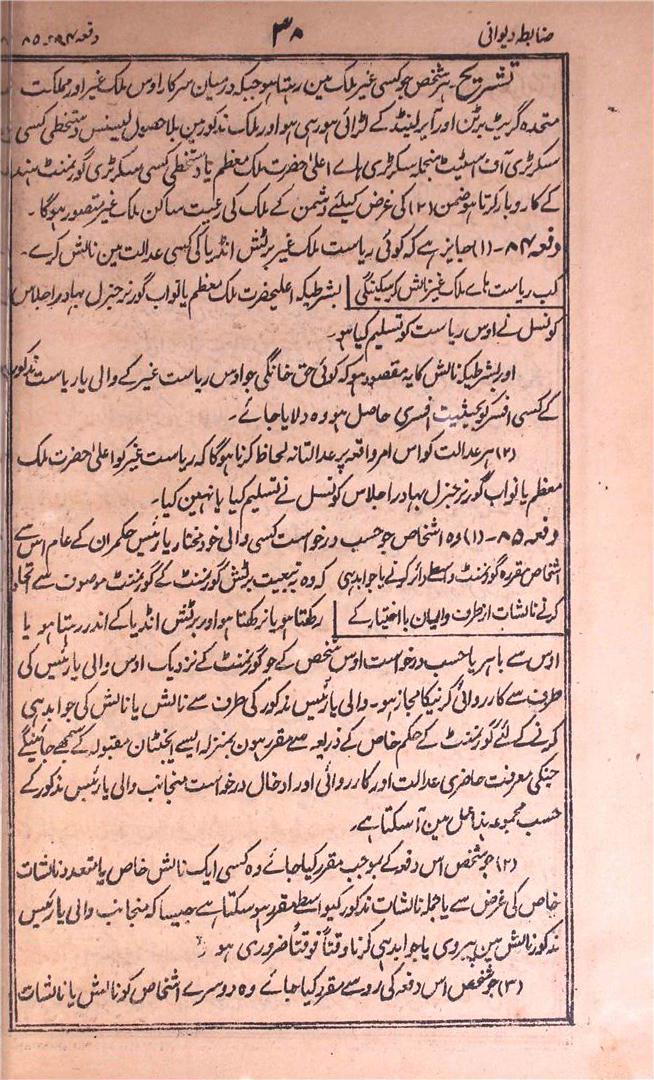 ضابطہ دیوانی
۳۸
دفعہ ۸۴ - ۸۵
تشریح۔ ہر شخص جو کسی غیر ملک مین رہتا ہو جبکہ درمیان سرکار اوس ملک غیر اور مملکت
متحدہ گریٹ برٹن اور آیرلینڈ کے لڑائی ہو رہی ہو اور ملک مذکور مین بلا حصول لیسنس دستخطی کسی
سکرٹری آف اسٹیٹ منجملہ سکرٹری ہاے اعلیٰ حضرت ملک معظم یا دستخطی کسی سکرٹری گورنمنٹ ہند
کے کاروبار کرتا ہو ضمن (۲) کی غرض کیلئے دشمن کے ملک کی رعیت ساکن ملک غیر متصور ہوگا۔
دفعہ ۸۴ - (۱) جایز ہے کہ کوئی ریاست ملک غیر برٹش انڈیا کی کسی عدالت مین نالش کرے۔
کب ریاست ہاے ملک غیر نالش کر سکینگی
بشرطیکہ اعلیحضرت ملک معظم یا نواب گورنر جنرل بہادر اجلاس
کونسل نے اوس ریاست کو تسلیم کیا ہو۔
اور بشرطیکہ نالش کا یہ مقصود ہو کہ کوئی حق خانگی جو اوس ریاست غیر کے والی یا ریاست مذکور
کے کسی افسر کو بحیثیت افسری حاصل ہو وہ دلایا جائے۔
(۲) ہر عدالت کو اس امر واقعہ پر عدالتانہ لحاظ کرنا ہوگا کہ ریاست غیر کو اعلیٰ حضرت ملک
معظم یا نواب گورنر جنرل بہادر اجلاس کونسل نے تسلیم کیا یا نہین کیا۔
دفعہ ۸۵ - (۱) وہ اشخاص جو حسب درخواست کسی والی خود مختار یا رئیس حکمران کے عام اس سے
اشخاص مقررہ گورنمنٹ واسطے دائر کرنے یا جوابدہی
کہ وہ بتبعیت برٹش گورنمنٹ کے گورنمنٹ موصوف سے اتحاد
کرنے نالشات از طرف والیان با اختیار کے
رکھتا ہو یا نرکھتا ہو اور برٹش انڈیا کے اندر رہتا ہو یا
اوس سے باہر یا حسب درخواست اوس شخص کے جو گورنمنٹ کے نزدیک اوس والی یا رئیس کی
طرف سے کارروائی کرنیکا مجاز ہو۔ والی یا رئیس مذکور کی طرف سے نالش یا نالش کی جوابدہی
کرنے کے لئے گورنمنٹ کے حکم خاص کے ذریعہ سے مقرر ہون بمنزلہ ایسے ایجنٹان مقبولہ کے سمجھے جائینگے
جنکی معرفت حاضری عدالت اور کارروائی اور ادخال درخواست منجانب والی یا رئیس مذکور کے
حسب مجموعہ ہذا عمل مین آسکتا ہے۔
(۲) جو شخص اس دفعہ کے بموجب مقرر کیا جائے وہ کسی ایک نالش خاص یا متعدد نالشات
خاص کی غرض سے یا جملہ نالشات مذکور کیواسطے مقرر ہو سکتا ہے جیسا کہ منجانب والی یا رئیس
مذکور نالش مین پیروی یا جوابدہی کرنا وقتاً فوقتاً ضروری ہو
(۳) جو شخص اس دفعہ کی رو سے مقرر کیا جائے وہ دوسرے اشخاص کو نالش یا نالشات